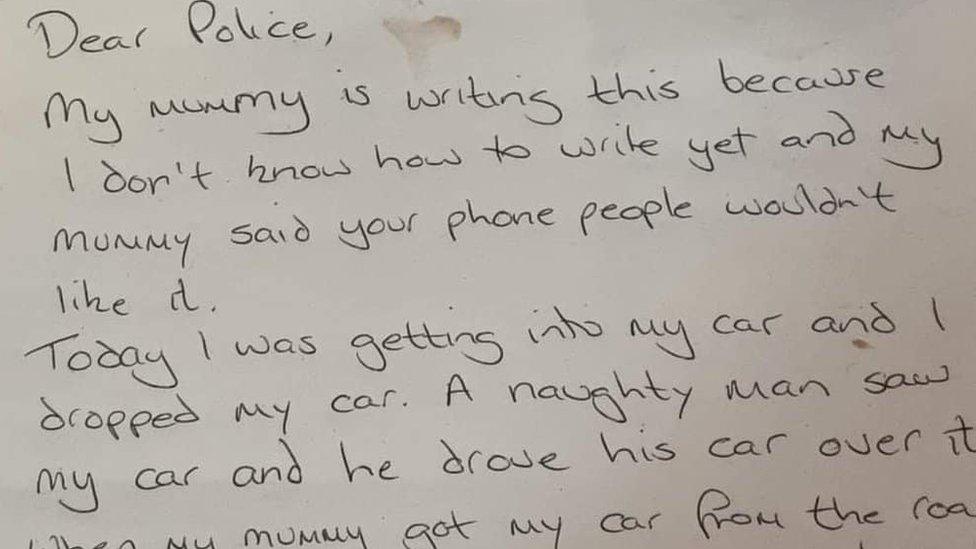 Dear Police,
My mummy is writing this because
I don't know how to write yet and my
mummy said your phone people wouldn't
like it.
Today I was getting into my car and I
dropped my car. A naughty man saw
my car and he drove his car over it
When my mummy got my car from the roa